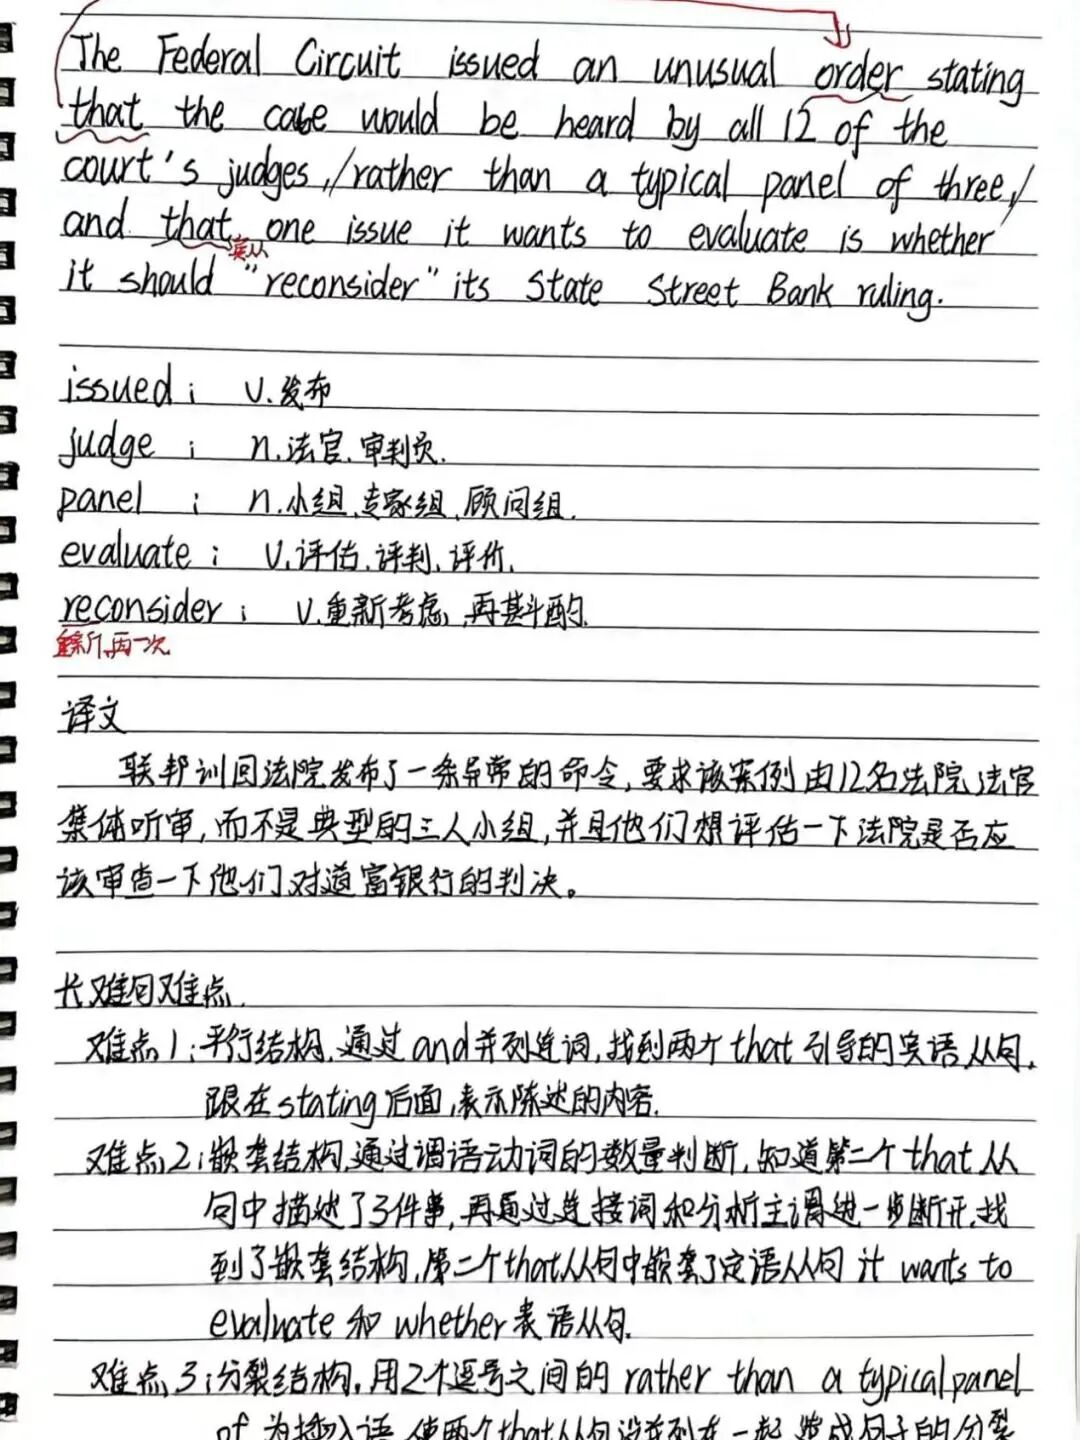 The Federal Circuit issued an unusual order stating
that the case would be heard by all 12 of the
court's judges,/rather than a typical panel of three,/
and that one issue it wants to evaluate is whether
宾从
it should "reconsider" its State Street Bank ruling.
issued; v.发布
judge; n.法官.审判员.
panel; n.小组.专家组.顾问组.
evaluate; v.评估.评判.评价.
reconsider; v.重新考虑,再斟酌.
重新,再一次
译文
联邦训回法院发布了一条异常的命令,要求该案例由12名法院法官
集体听审,而不是典型的三人小组,并且他们想评估一下法院是否应
该审查一下他们对道富银行的判决。
长难句难点.
难点1;平行结构.通过and并列连词,找到两个that引导的宾语从句.
跟在stating后面,表示陈述的内容.
难点2;嵌套结构.通过谓语动词的数量判断,知道第二个that从
句中描述了3件事,再通过连接词和分析主谓进一步断开.找
到了嵌套结构.第二个that从句中嵌套了定语从句 it wants to
evaluate 和 whether表语从句.
难点3;分裂结构.用2个逗号之间的 rather than a typical panel
of 为插入语,使两个that从句没并列在一起,造成句子的分裂